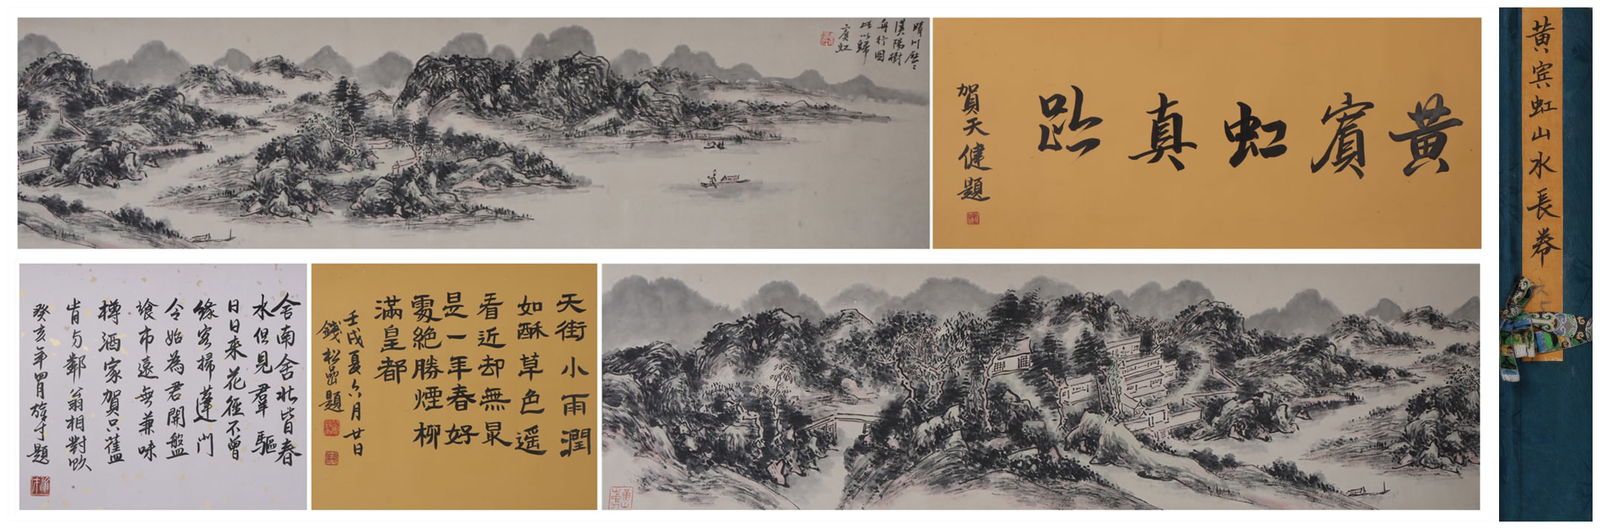 晴川歷〻
漢陽樹
舟行圖
賓虹
黃賓虹真跡
賀天健題
黄宾虹山水長卷
舍南舍北皆春
水但見羣驅
日日来花徑不曾
緣客掃蓬門
今始為君開盤
飱市遠無兼味
樽酒家賀只舊
肯与鄰翁相對飲
癸亥年四月題
天街小雨潤
如酥草色遥
看近却無最
是一年春好
處絶勝煙柳
滿皇都
壬戌夏六月廿日
錢松嵒題